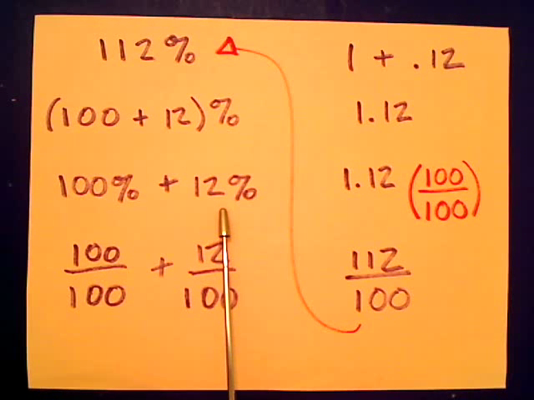 112%
(100 + 12)%
100% + 12%
100/100 + 12/100
1 + .12
1.12
1.12 (100/100)
112/100